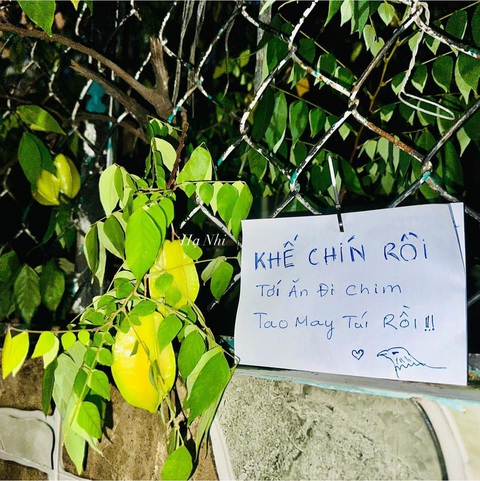 Hạ Nhi
KHẾ CHÍN RỒI
Tới Ăn Đi Chim
Tao May Túi RỒi !!!